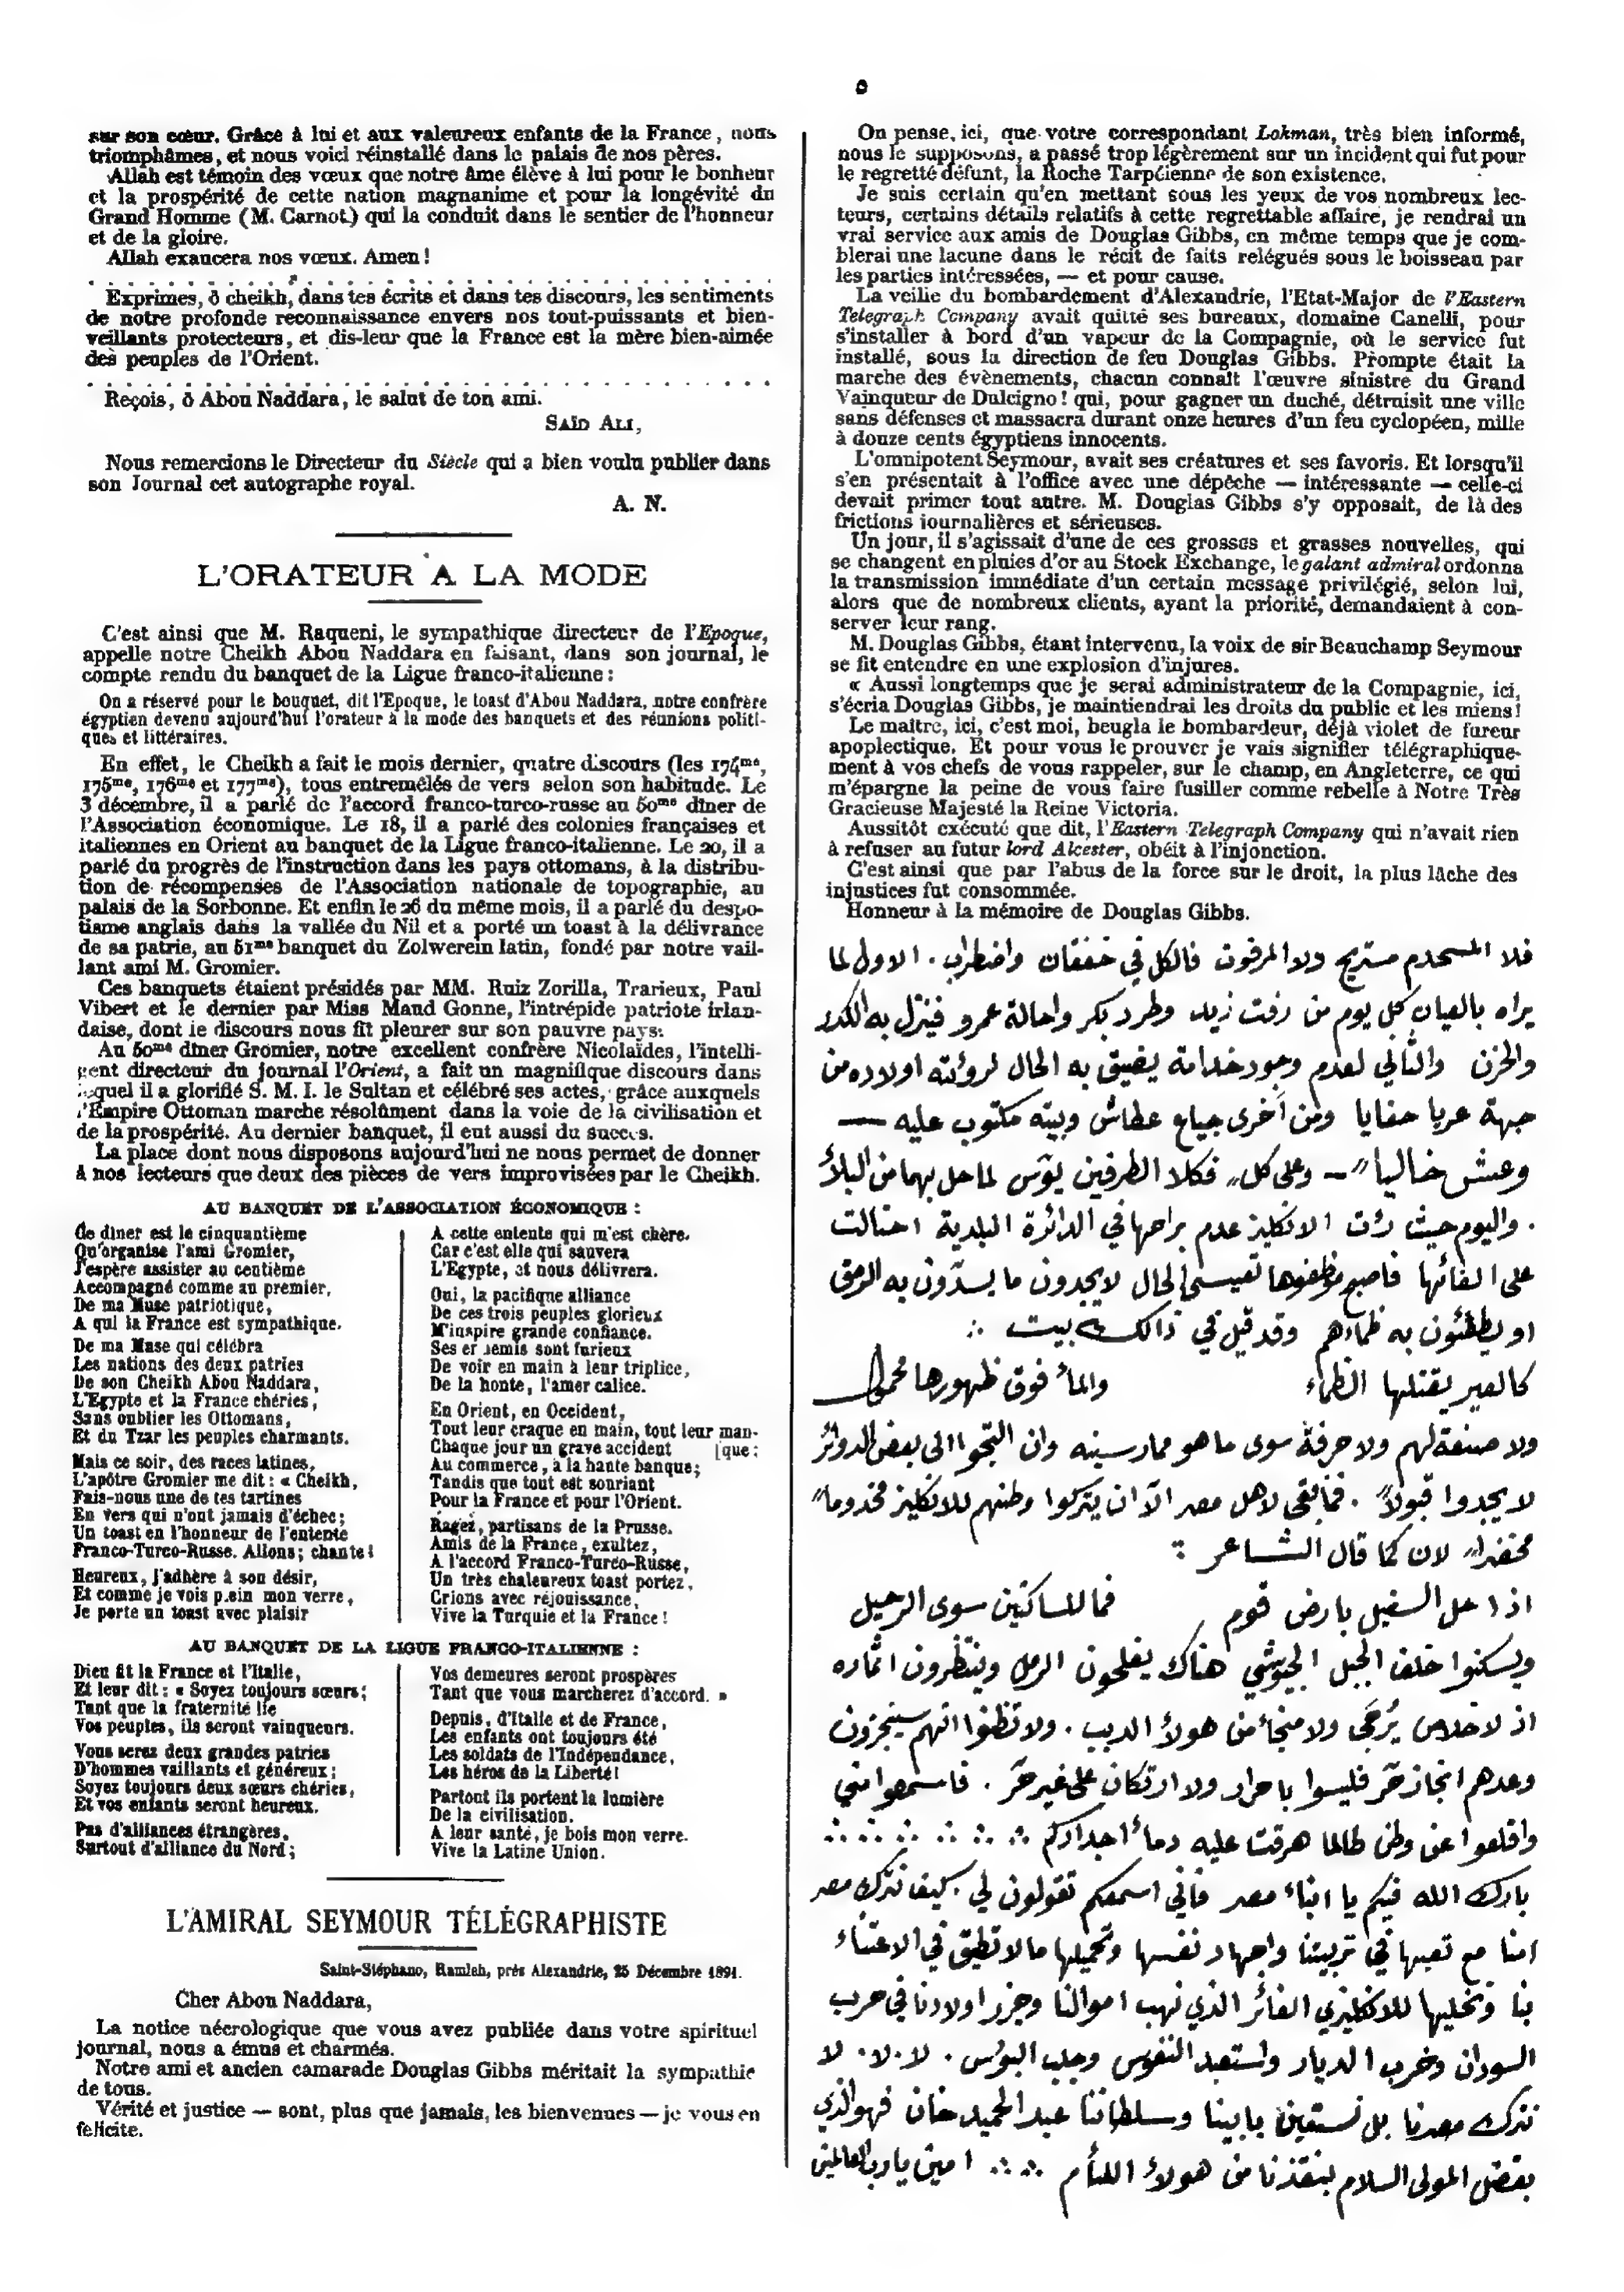 ٥
sur son cœur. Grâce à lui et aux valeureux enfants de la France, nous
triomphâmes, et nous voici réinstallé dans le palais de nos pères.
Allah est témoin des vœux que notre âme élève à lui pour le bonheur
et la prospérité de cette nation magnanime et pour la longévité du
Grand Homme (M. Carnot) qui la conduit dans le sentier de l'honneur
et de la gloire.
Allah exaucera nos vœux. Amen !
Exprimes, ô cheikh, dans tes écrits et dans tes discours, les sentiments
de notre profonde reconnaissance envers nos tout-puissants et bien-
veillants protecteurs, et dis-leur que la France est la mère bien-aimée
des peuples de l'Orient.
Reçois, ô Abou Naddara, le salut de ton ami.
SAÏD ALI,
Nous remercions le Directeur du Siècle qui a bien voulu publier dans
son Journal cet autographe royal.
A. N.
L'ORATEUR A LA MODE
C'est ainsi que M. Raqueni, le sympathique directeur de l'Epoque,
appelle notre Cheikh Abou Naddara en faisant, dans son journal, le
compte rendu du banquet de la Ligue franco-italienne :
On a réservé pour le bouquet, dit l'Epoque, le toast d'Abou Naddara, notre confrère
égyptien devenu aujourd'hui l'orateur à la mode des banquets et des réunions politi-
ques et littéraires.
En effet, le Cheikh a fait le mois dernier, quatre discours (les 174me,
175me, 176me et 177me), tous entremêlés de vers selon son habitude. Le
3 décembre, il a parlé de l'accord franco-turco-russe au 50me dîner de
l'Association économique. Le 18, il a parlé des colonies françaises et
italiennes en Orient au banquet de la Ligue franco-italienne. Le 20, il a
parlé du progrès de l'instruction dans les pays ottomans, à la distribu-
tion de récompenses de l'Association nationale de topographie, au
palais de la Sorbonne. Et enfin le 26 du même mois, il a parlé du despo-
tisme anglais dans la vallée du Nil et a porté un toast à la délivrance
de sa patrie, au 51me banquet du Zolwerein latin, fondé par notre vail-
lant ami M. Gromier.
Ces banquets étaient présidés par MM. Ruiz Zorilla, Trarieux, Paul
Vibert et le dernier par Miss Maud Gonne, l'intrépide patriote irlan-
daise, dont le discours nous fit pleurer sur son pauvre pays.
Au 50me dîner Gromier, notre excellent confrère Nicolaïdes, l'intelli-
gent directeur du journal l'Orient, a fait un magnifique discours dans
lequel il a glorifié S. M. I. le Sultan et célébré ses actes, grâce auxquels
l'Empire Ottoman marche résolûment dans la voie de la civilisation et
de la prospérité. Au dernier banquet, il eut aussi du succès.
La place dont nous disposons aujourd'hui ne nous permet de donner
à nos lecteurs que deux des pièces de vers improvisées par le Cheikh.
AU BANQUET DE L'ASSOCIATION ÉCONOMIQUE :
Ce dîner est le cinquantième
Qu'organise l'ami Gromier,
J'espère assister au centième
Accompagné comme au premier,
De ma Muse patriotique,
A qui la France est sympathique.
De ma Muse qui célébra
Les nations des deux patries
De son Cheikh Abou Naddara,
L'Egypte et la France chéries,
Sans oublier les Ottomans,
Et du Tzar les peuples charmants.
Mais ce soir, des races latines,
L'apôtre Gromier me dit : « Cheikh,
Fais-nous une de tes tartines
En vers qui n'ont jamais d'échec;
Un toast en l'honneur de l'entente
Franco-Turco-Russe. Allons; chante !
Heureux, j'adhère à son désir,
Et comme je vois plein mon verre,
Je porte un toast avec plaisir
A cette entente qui m'est chère.
Car c'est elle qui sauvera
L'Egypte, et nous délivrera.
Oui, la pacifique alliance
De ces trois peuples glorieux
M'inspire grande confiance.
Ses ennemis sont furieux
De voir en main à leur triplice,
De la honte, l'amer calice.
En Orient, en Occident,
Tout leur craque en main, tout leur man-
Chaque jour un grave accident [que :
Au commerce, à la haute banque;
Tandis que tout est souriant
Pour la France et pour l'Orient.
Ragez, partisans de la Prusse.
Amis de la France, exultez,
A l'accord Franco-Turco-Russe,
Un très chaleureux toast portez,
Crions avec réjouissance,
Vive la Turquie et la France !
AU BANQUET DE LA LIGUE FRANCO-ITALIENNE :
Dieu fit la France et l'Italie,
Et leur dit : « Soyez toujours sœurs;
Tant que la fraternité lie
Vos peuples, ils seront vainqueurs.
Vous serez deux grandes patries
D'hommes vaillants et généreux;
Soyez toujours deux sœurs chéries,
Et vos enfants seront heureux.
Pas d'alliances étrangères,
Surtout d'alliance du Nord;
Vos demeures seront prospères
Tant que vous marcherez d'accord. »
Depuis, d'Italie et de France,
Les enfants ont toujours été
Les soldats de l'Indépendance,
Les héros de la Liberté!
Partout ils portent la lumière
De la civilisation.
A leur santé, je bois mon verre.
Vive la Latine Union.
L'AMIRAL SEYMOUR TÉLÉGRAPHISTE
Saint-Stéphano, Ramleh, près Alexandrie, 25 Décembre 1891.
Cher Abou Naddara,
La notice nécrologique que vous avez publiée dans votre spirituel
journal, nous a émus et charmés.
Notre ami et ancien camarade Douglas Gibbs méritait la sympathie
de tous.
Vérité et justice — sont, plus que jamais, les bienvenues — je vous en
félicite.
On pense, ici, que votre correspondant Lokman, très bien informé,
nous le supposons, a passé trop légèrement sur un incident qui fut pour
le regretté défunt, la Roche Tarpéienne de son existence.
Je suis certain qu'en mettant sous les yeux de vos nombreux lec-
teurs, certains détails relatifs à cette regrettable affaire, je rendrai un
vrai service aux amis de Douglas Gibbs, en même temps que je com-
blerai une lacune dans le récit de faits relégués sous le boisseau par
les parties intéressées, — et pour cause.
La veille du bombardement d'Alexandrie, l'Etat-Major de l'Eastern
Telegraph Company avait quitté ses bureaux, domaine Canelli, pour
s'installer à bord d'un vapeur de la Compagnie, où le service fut
installé, sous la direction de feu Douglas Gibbs. Prompte était la
marche des évènements, chacun connaît l'œuvre sinistre du Grand
Vainqueur de Dulcigno! qui, pour gagner un duché, détruisit une ville
sans défenses et massacra durant onze heures d'un feu cyclopéen, mille
à douze cents égyptiens innocents.
L'omnipotent Seymour, avait ses créatures et ses favoris. Et lorsqu'il
s'en présentait à l'office avec une dépêche — intéressante — celle-ci
devait primer tout autre. M. Douglas Gibbs s'y opposait, de là des
frictions journalières et sérieuses.
Un jour, il s'agissait d'une de ces grosses et grasses nouvelles, qui
se changent en pluies d'or au Stock Exchange, le galant admiral ordonna
la transmission immédiate d'un certain message privilégié, selon lui,
alors que de nombreux clients, ayant la priorité, demandaient à con-
server leur rang.
M. Douglas Gibbs, étant intervenu, la voix de sir Beauchamp Seymour
se fit entendre en une explosion d'injures.
« Aussi longtemps que je serai administrateur de la Compagnie, ici,
s'écria Douglas Gibbs, je maintiendrai les droits du public et les miens!
Le maître, ici, c'est moi, beugla le bombardeur, déjà violet de fureur
apoplectique. Et pour vous le prouver je vais signifier télégraphique-
ment à vos chefs de vous rappeler, sur le champ, en Angleterre, ce qui
m'épargne la peine de vous faire fusiller comme rebelle à Notre Très
Gracieuse Majesté la Reine Victoria.
Aussitôt exécuté que dit, l'Eastern Telegraph Company qui n'avait rien
à refuser au futur lord Alcester, obéit à l'injonction.
C'est ainsi que par l'abus de la force sur le droit, la plus lâche des
injustices fut consommée.
Honneur à la mémoire de Douglas Gibbs.
فلا المستخدم مستريح ولا المرفوت فالكل في خفقان واضطراب . الاول لما
يراه بالعيان كل يوم من رفت زيد وطرد بكر واحالة عمرو فينزل به الكدر
والحزن والثاني لعدم وجود خدامة يضيق به الحال لروئته اولاده من
جهة عريا حفايا ومن أخرى جياع عطاش وبيته مكتوب عليه —
وعش خالياً — وعلى كلٍ فكلا الطرفين يؤس لما حل بهما من البلأ
. واليوم حيث رأت الانكليز عدم براحها في الدائرة البلدية احتالت
على الغائها فاصبح موظفوها تعيسى الحال لايجدون ما يسدّون به الرمق
او يطفئون به ظماءهم وقد قيل في ذالك بيت ∴
كالعير يقتلها الظماء والمأ فوق ظهورها محمول
ولا صنعة لهم ولا حرفة سوى ما هو ممارسينه وان التجوا الى بعض الدوائر
لايجدوا قبولاً . فما بقى لاهل مصر الّا ان يتركوا وطنهم للانكليز مخدوماً
مخضراً لان كما قال الشاعر :
اذا حل السفيل بارض قوم فما للساكنين سوى الرحيل
ويسكنوا خلف الجبل الجيوشي هناك يفلحون الرمل وينتظرون اثماره
اذ لا خلاص يُرجى ولا منجاً من هولأ الدبب . ولا تظنوا انهم سينجزون
وعدهم انجاز حرّ فليسوا باحرار ولا ارتكان على غير حرّ . فاسمعوا مني
واقلعوا عن وطن طالما هرقت عليه دمأ اجدادكم ∴ ∴ ∴ ∴ ∴
بارك الله فيكم يا ابناء مصر فاني اسمعكم تقولون لي . كيف نترك مصر
امنا مع تعبها في تربيتنا واجهاد نفسها وتحميلها ما لا تطيق في الاعتناء
بنا ونخليها للانكليزي الغائر الذي نهب اموالنا وجزر اولادنا في حرب
السودان وخرب الديار واستعبد النفوس وجلب البؤس . لا . لا . لا
نترك مصرنا بل نستعين بابينا وسلطاننا عبد الحميد خان فهو الذي
بفضل المولى السلام ينقذنا من هولأ اللئام ∴ ∴ امين يا رب العالمين